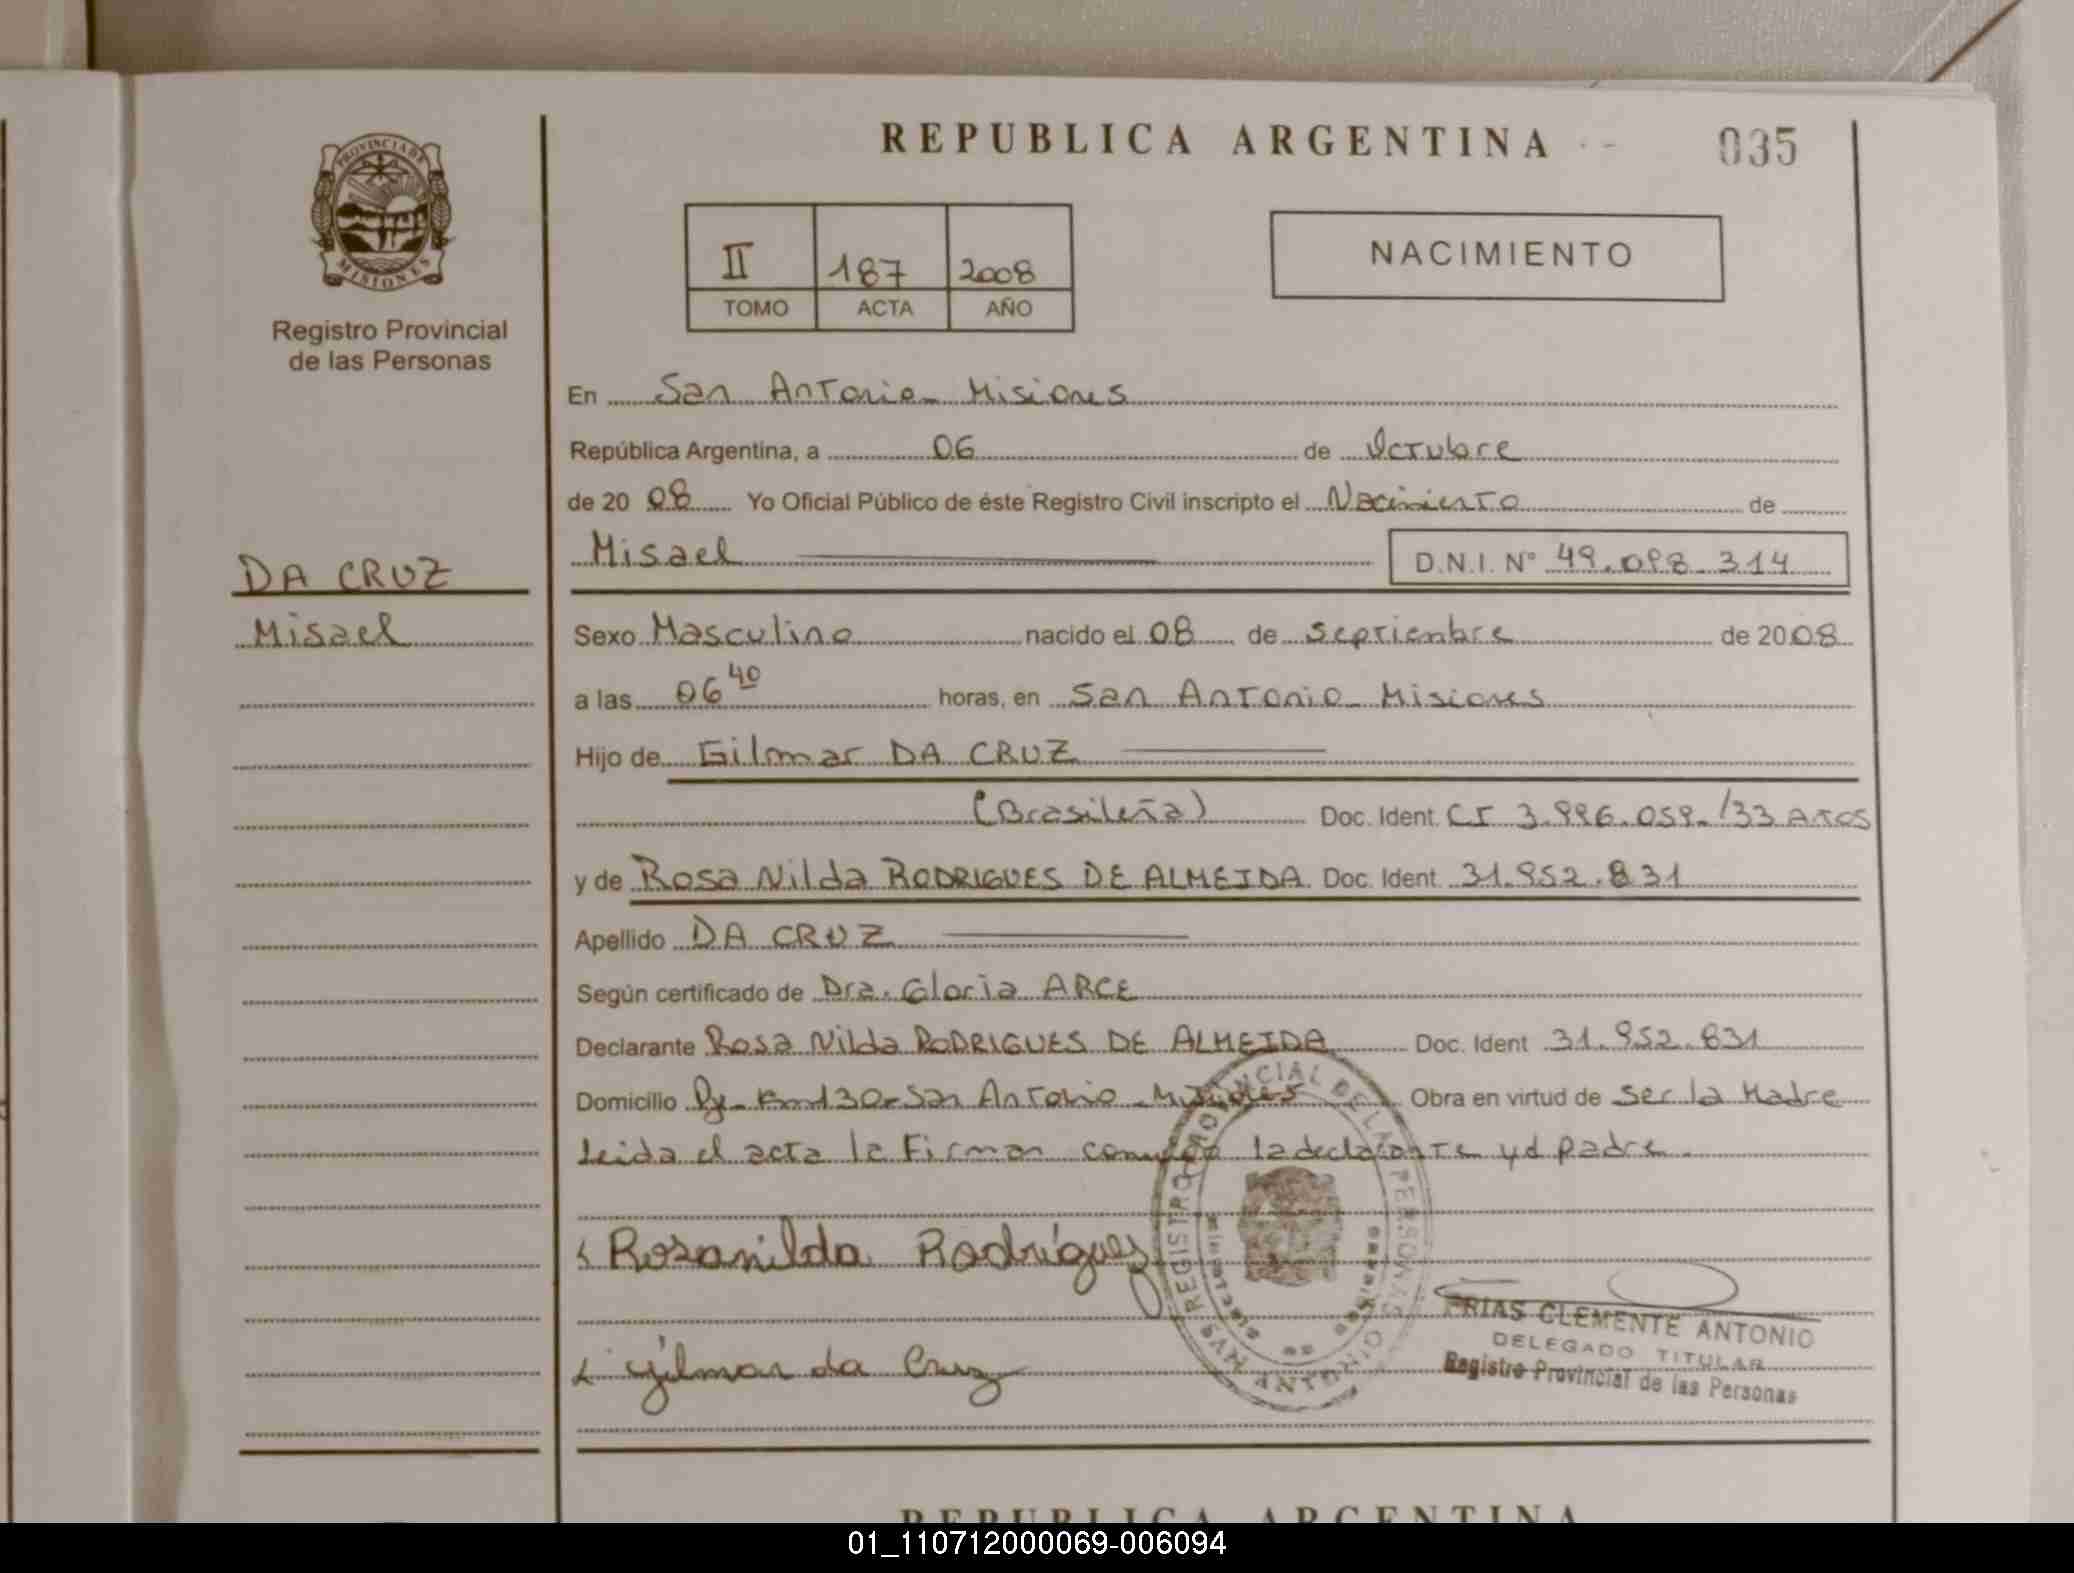 REPUBLICA ARGENTINA
035
PROVINCIA DE
MISIONES
Registro Provincial
de las Personas
II 187 2008
TOMO ACTA AÑO
NACIMIENTO
En San Antonio - Misiones
República Argentina, a 06 de Octubre
de 20 08 Yo Oficial Público de éste Registro Civil inscripto el Nacimiento de
Misael D.N.I. Nº 49.098.314
DA CRUZ
Misael
Sexo Masculino nacido el 08 de septiembre de 2008
a las 06 40 horas, en San Antonio - Misiones
Hijo de Gilmar DA CRUZ
(Brasileña) Doc. Ident. CI 3.996.059./33 Años
y de Rosa Nilda RODRIGUES DE ALMEIDA Doc. Ident. 31.952.831
Apellido DA CRUZ
Según certificado de Dra. Gloria ARCE
Declarante Rosa Nilda RODRIGUES DE ALMEIDA Doc. Ident 31.952.831
Domicilio Pje - Km 130 - San Antonio - Misiones Obra en virtud de ser la Madre
Leida el acta la Firman conmigo la declarante y el padre.
Rosanilda Rodrigues
Gilmar da Cruz
REGISTRO PROVINCIAL DE LAS PERSONAS
FRIAS CLEMENTE ANTONIO
DELEGADO TITULAR
Registro Provincial de las Personas
REPUBLICA ARGENTINA
01_110712000069-006094